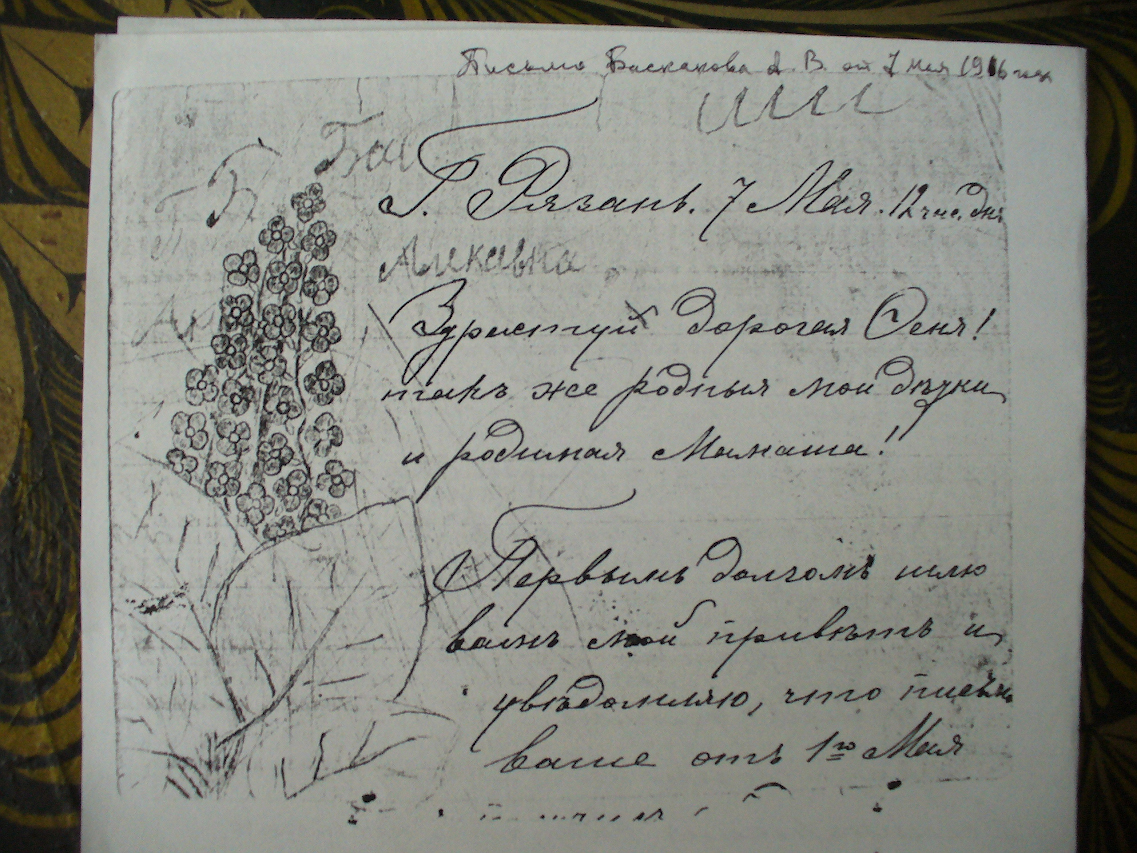 Письмо Баскакова А. В. от 7 мая 1916 года
Г. Рязань. 7 Мая. 12 час. дня
Здраствуй дорогая Сеня!
такъ же родныя мои дѣтки
и родимая Мамаша!
Первымъ долгомъ шлю
вамъ мой привѣтъ и
увѣдомляю, что письмо
ваше отъ 1го Мая